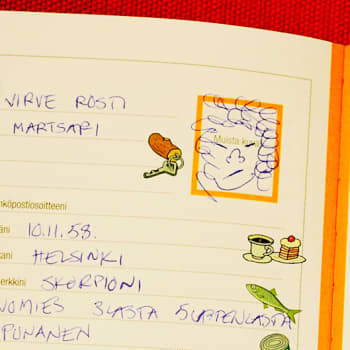 VIRVE ROSTI
MARTSARI
Muista k
köpostiosoitteeni
äni 10.11.58.
tani HELSINKI
erkkini SKORPIONI
NOMIES 3LASTA 5LAPPENLASTA
PUNANEN